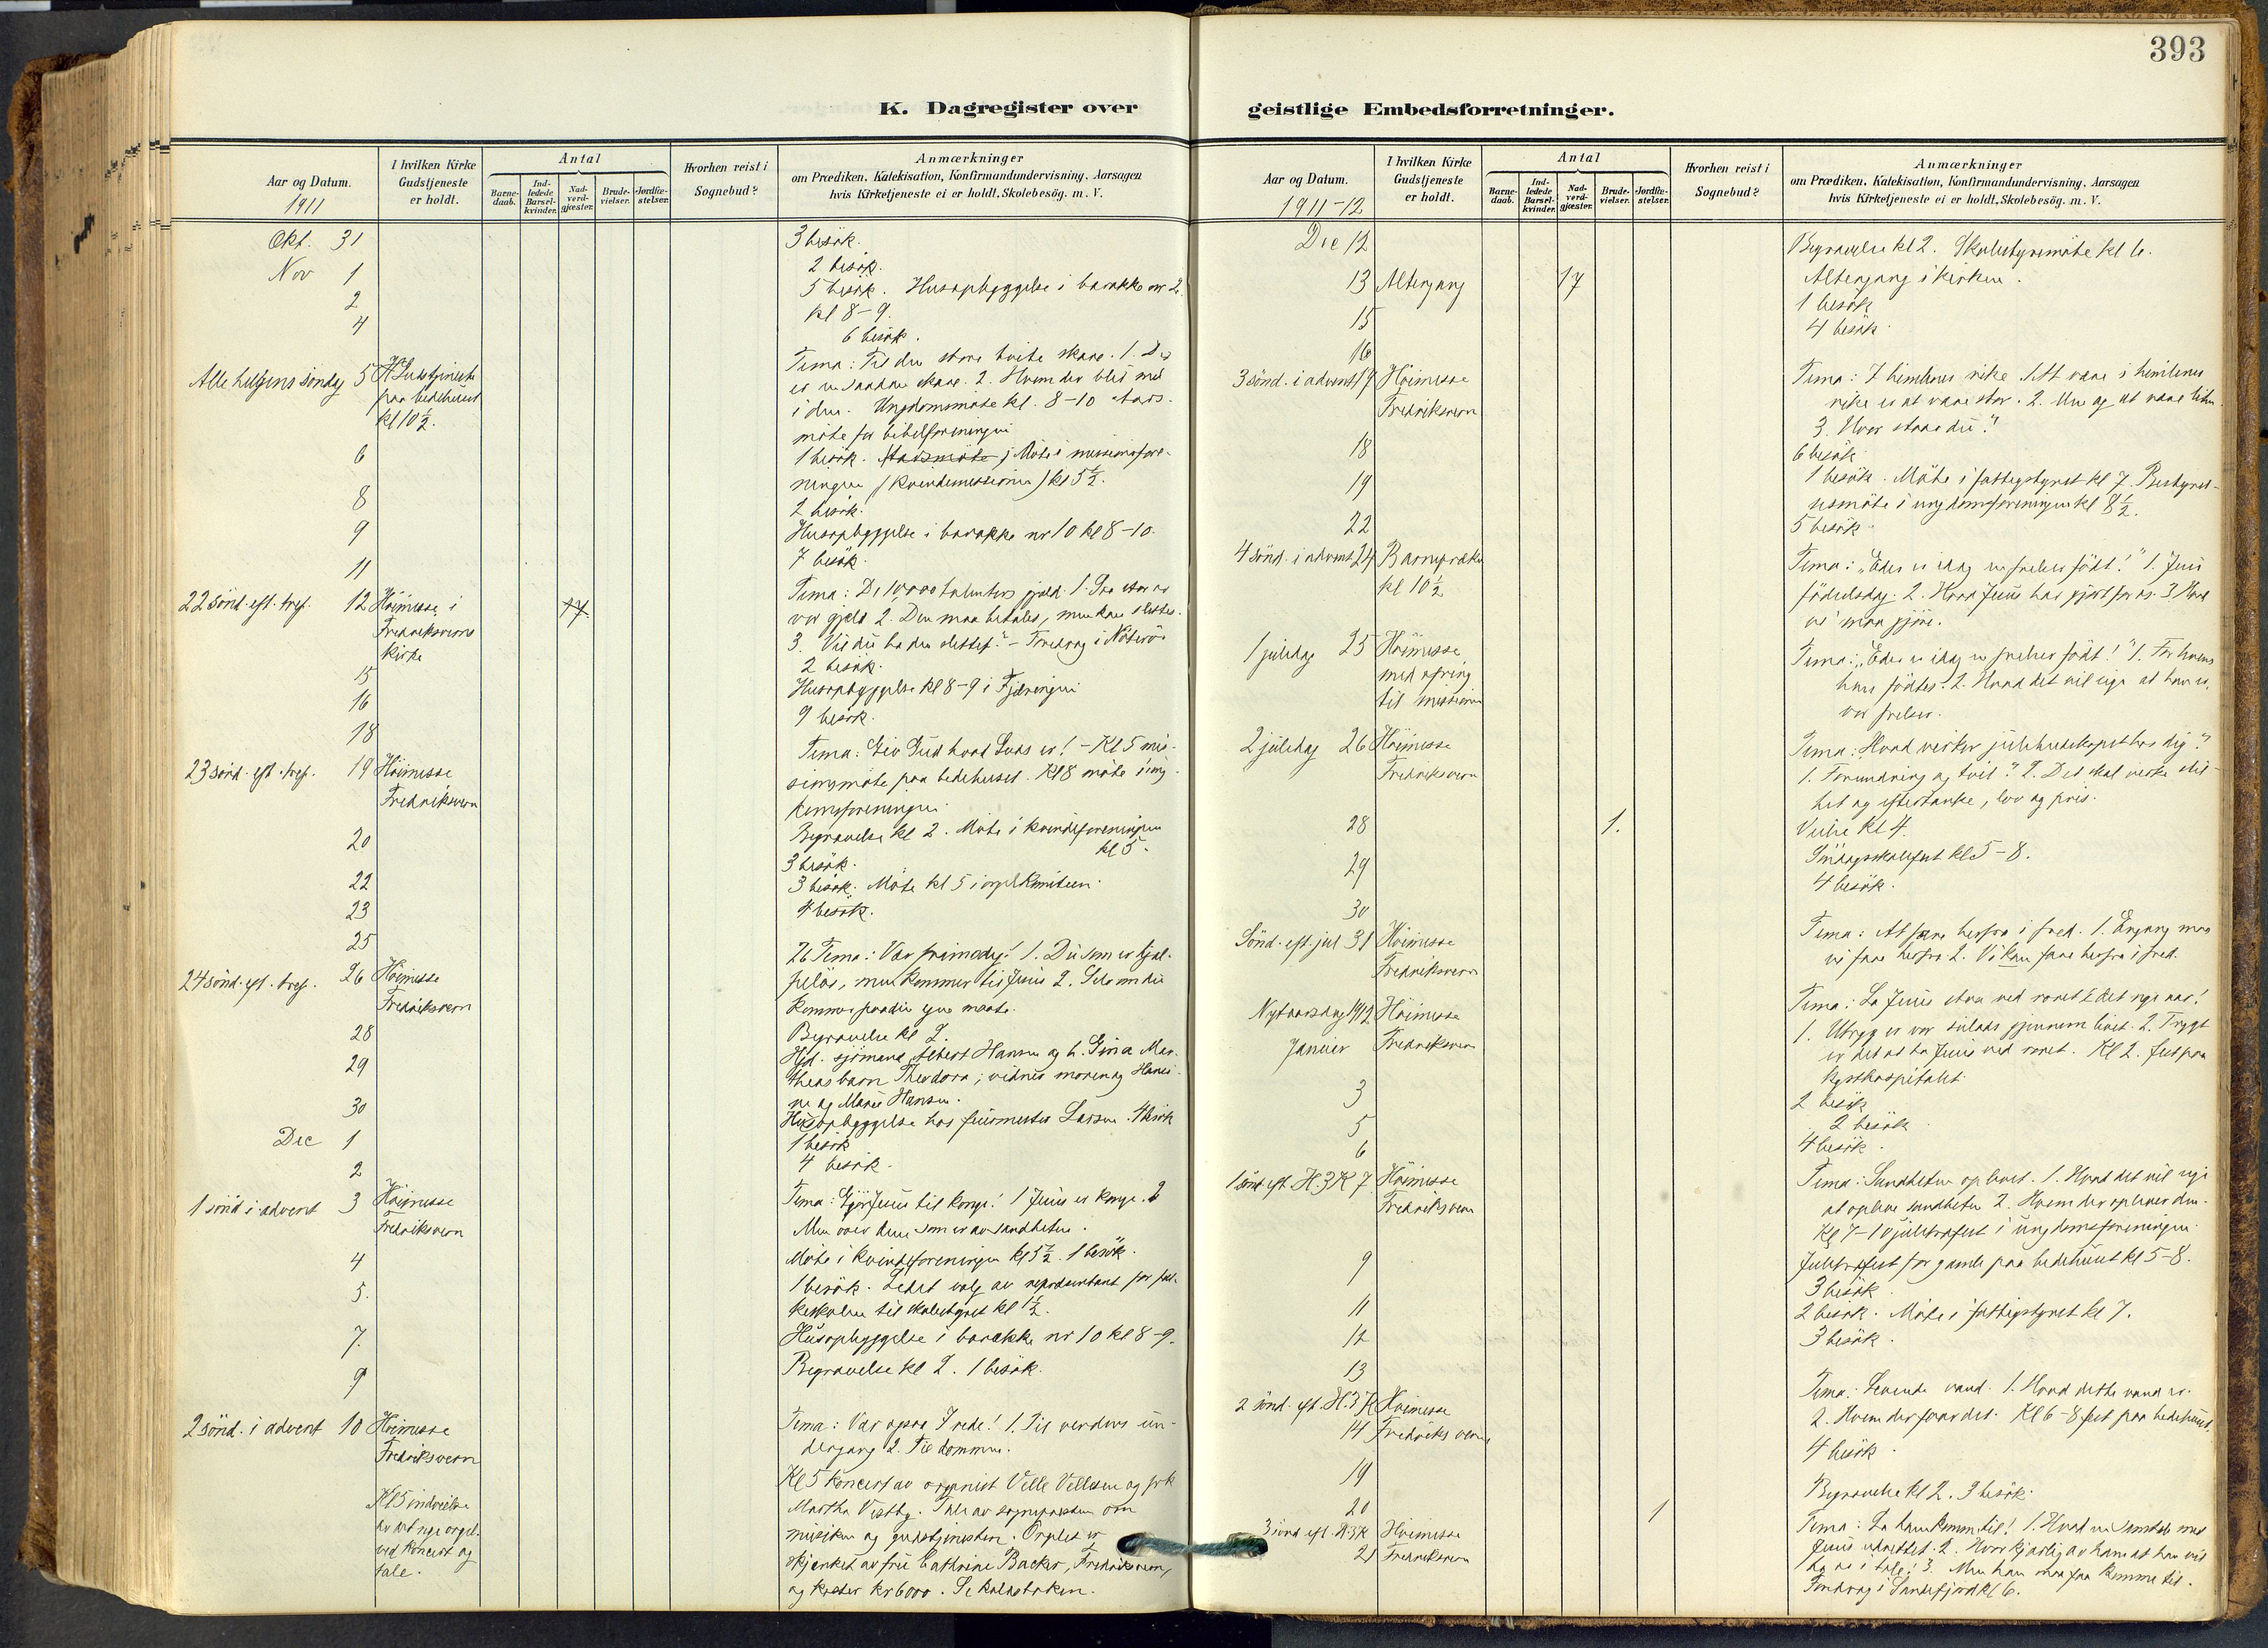 393
K. Dagregister over
Aar og Datum.
1911
I hvilken Kirke
Gudstjeneste
er holdt.
Antal
Barne-
daab.
Ind-
ledede
Barsel-
kvinder.
Nad-
verd-
gjæster.
Brude-
vielser.
Jordfæ-
stelser.
Hvorhen reist i
Sognebud?
Anmærkninger
om Prædiken, Katekisation, Konfirmandundervisning, Aarsagen
hvis Kirketjeneste ei er holdt, Skolebesög. m. V.
Okt. 31 3 besøk.
Nov 1 2 besøk.
2 5 besøk. Husopbyggelse i barakke nr 2.
kl 8-9.
4 6 besøk.
Alle helgens søndag 5 Gudstjeneste
paa bedehuset
kl 10½.
Tema: Til den store hvite skare. 1. Der
er en saadan skare. 2. Hvem der blir med
i den. Ungdomsmøte kl. 8-10. Aars-
møte for bibelforeningen
6 1 besøk. Aarsmøte; Møte i missionsfore-
ningen (kvindemissionen) kl 5½.
8 2 besøk.
9 Husopbyggelse i barakke nr 10 kl 8-10.
11 7 besøk.
22 sønd. eft. tref. 12 Høimesse i
Fredriksverns
kirke
17
Tema: De 10,000 talenters gjæld. 1. Saa stor er
vor gjæld 2. Den maa betales, men kan slettes.
3. Vil du ha den slettet? - Foredrag i Nøterø
15 2 besøk.
16 Husopbyggelse kl 8-9 i Fjæringen
18 9 besøk.
23 sønd. eft. tref. 19 Høimesse
Fredriksvern
Tema: Giv Gud hvad Guds er! - Kl 5 mis-
sionsmøte paa bedehuset. Kl 8 møte i ung-
domsforeningen.
20 Begravelse kl 2. Møte i kvindeforeningen
kl 5.
22 3 besøk.
23 3 besøk. Møte kl 5 i orgelkomiteen.
25 4 besøk.
24 sønd. eft. tref. 26 Høimesse
Fredriksvern
26 Tema: Vær frimodig! 1. Du som er hjæl-
peløs, men kommer til Jesus 2. Selv om du
kommer paa din egen maate.
28 Begravelse kl 2.
29 Hjd. sjømand Albert Hansen og h. Gina Mar-
theas barn Theodora; vidner moren og Hansi-
ne og Marie Hansen.
30 Husopbyggelse hos Larsen. 4 besøk
Dec 1 1 besøk
2 4 besøk.
1 sønd i advent 3 Høimesse
Fredriksvern
Tema: Gjør Jesus til konge! 1 Jesus er konge. 2
Men over dem som er av sandheten.
4 Møte i kvindeforeningen kl 5½. 1 besøk.
5. 1 besøk. Ledet valg av repræsentant for fol-
keskolen til skolestyret kl 1½.
7. Husopbyggelse i barakke nr 10 kl 8-9.
9 Begravelse kl 2. 1 besøk.
2 sønd. i advent 10 Høimesse
Fredriksvern
Tema: Vær ogsaa I rede! 1. Til verdens un-
dergang 2. Til dommen.
Kl 5 indvielse
av det nye orgel
ved koncert og
tale.
Kl 5 koncert av organist Velle Vellesen og frk
Martha Vestby. Tale av sognepresten om
musiken og gudstjenesten. Orglet er
skjænket av fru Cathrine Backer, Fredriksvern,
og koster kr 6000. Se kaldsboken.
geistlige Embedsforretninger.
Aar og Datum.
1911-12
I hvilken Kirke
Gudstjeneste
er holdt.
Antal
Barne-
daab.
Ind-
ledede
Barsel-
kvinder.
Nad-
verd-
gjæster.
Brude-
vielser.
Jordfæ-
stelser.
Hvorhen reist i
Sognebud?
Anmærkninger
om Prædiken, Katekisation, Konfirmandundervisning, Aarsagen
hvis Kirketjeneste ei er holdt, Skolebesög. m. V.
Dec 12 Begravelse kl 2. Skolestyremøte kl 6.
13 Altergang 17 Altergang i kirken.
15 1 besøk
16 4 besøk.
3 sønd. i advent 17 Høimesse
Fredriksvern
Tema: I himlenes rike. 1. At være i himlenes
rike er at være stor. 2. Men og at være liten
3. Hvor staar du?
18 6 besøk
19 1 besøk. Møte i fattigstyret kl 7. Bestyrel-
sesmøte i ungdomsforeningen kl 8½.
22 5 besøk.
4 sønd. i advent 24 Barnepræken
kl 10½
Tema: "Eder er idag en frelser født!" 1. Jesu
fødselsdag. 2. Hvad Jesus har gjort for os. 3. Hvad
vi maa gjøre.
1 juledag 25 Høimesse
med ofring
til missionen
Tema: "Eder er idag en frelser født!" 1. For hvem
han fødtes. 2. Hvad det vil sige at han er
vor frelser.
2 juledag 26 Høimesse
Fredriksvern
Tema: Hvad virker julebudskapet hos dig?
1. Forundring og tvil? 2. Det skal virke stil-
het og eftertanke, lov og pris.
28 1. Vielse kl 4.
29 Søndagsskolefest kl 5-8.
30 4 besøk.
Sønd. eft. jul 31 Høimesse
Fredriksvern
Tema: At fare herfra i fred. 1. Engang maa
vi fare herfra 2. Vi kan fare herfra i fred.
Nytaarsdag 1912 Høimesse
Januar Fredriksvern
Tema: La Jesus staa ved roret i det nye aar!
1. Utryg er vor seilads gjennem livet. 2. Trygt
er det at ha Jesus ved roret. Kl 2. fest paa
kysthospitalet.
3 2 besøk
5 2 besøk
6 4 besøk.
1 sønd. eft. H.3K 7 Høimesse
Fredriksvern
Tema: Sandheten oplevet. 1. Hvad det vil sige
at opleve sandheten 2. Hvem der oplever den.
Kl 7-10 juletræfest i ungdomsforeningen.
9 Juletræfest for gamle paa bedehuset kl 5-8.
3 besøk.
11 2 besøk. Møte i fattigstyret kl 7.
12 3 besøk.
13
2 sønd. eft. H.3K Høimesse
14 Fredriksvern
Tema: Levende vand. 1. Hvad dette vand er.
2. Hvem der faar det. Kl 6-8 fest paa bedehuset.
19 4 besøk.
20 1 Begravelse kl 2. 3 besøk.
3 sønd eft. H.3K Høimesse
21 Fredriksvern
Tema: La ham komme til! 1. Hvad en samtale med
Jesus utrettet. 2. Hvor kjærlig av ham at han vil
ta os i tale! 3. Men han maa faa komme til.
Foredrag i Sandefjord kl 6.